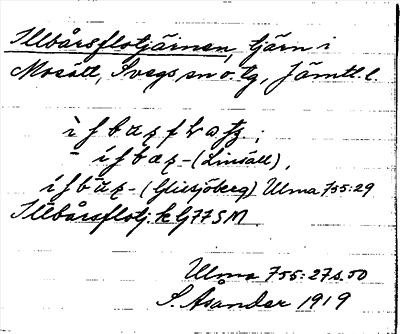 Illbårsflotjärnen, tjärn i
Mosätt, Svegs sn o. tg, Jämtl. l.
- (Linsäll),
- (Glissjöberg) Ulma 755:29
Illbårsflotj. k G77SM
Ulma 755:27 s. 50
S. Åsander 1919